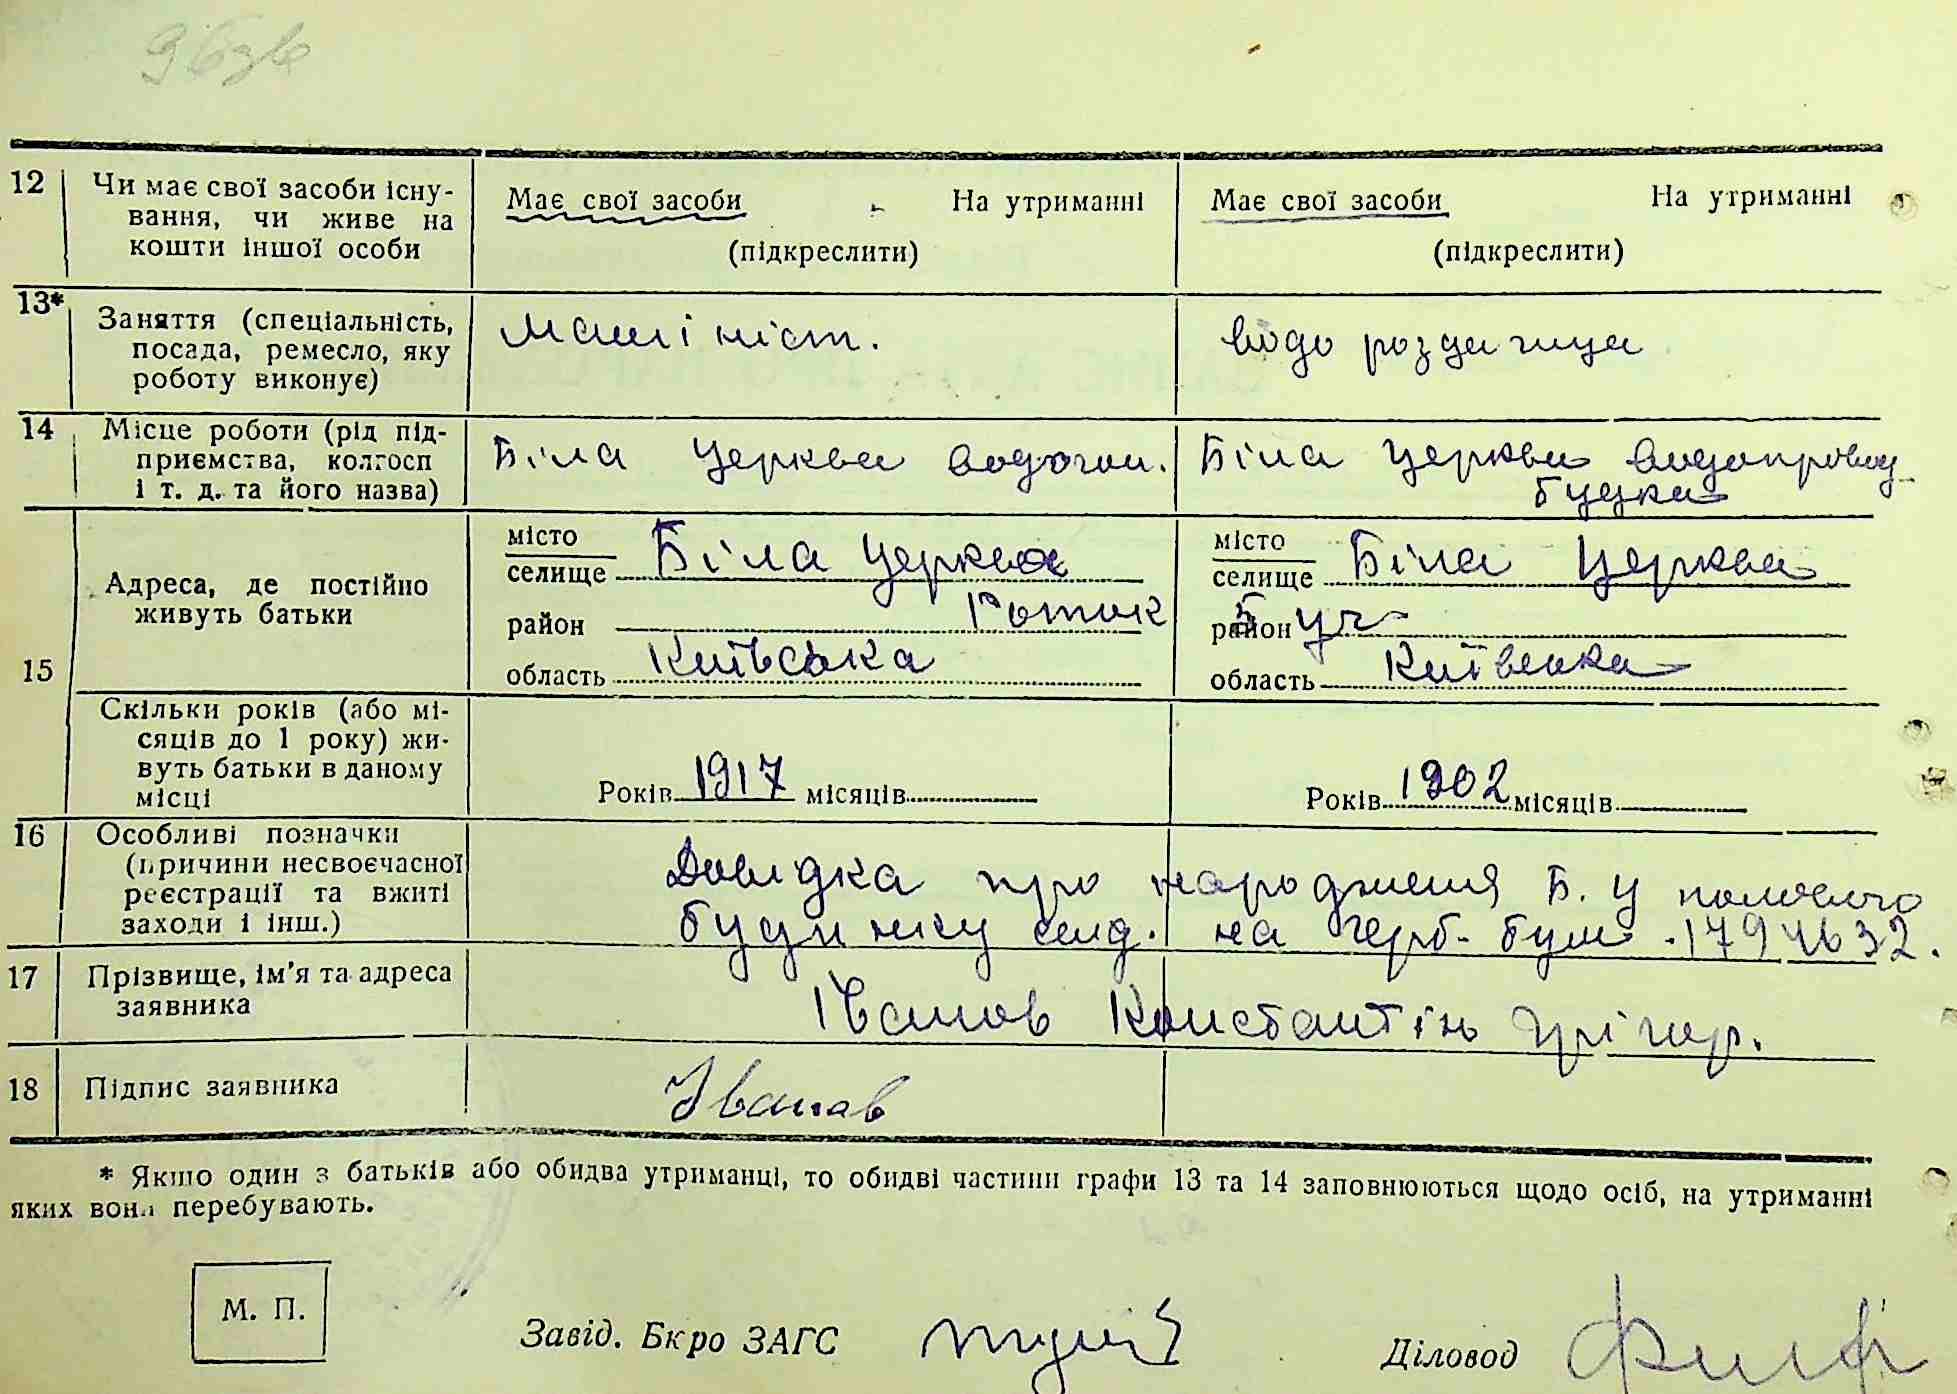 12 Чи має свої засоби існу-
вання, чи живе на
кошти іншої особи
Має свої засоби На утриманні
(підкреслити)
Має свої засоби На утриманні
(підкреслити)
13* Заняття (спеціальність,
посада, ремесло, яку
роботу виконує)
Машініст.
водо роздачица
14 Місце роботи (рід під-
приємства, колгосп
і т. д. та його назва)
Біла Церква водогон.
Біла Церква водопровод_
будка
15 Адреса, де постійно
живуть батьки
місто
селище Біла Церква
район Роток
область Київська
місто
селище Біла Церква
район 5 уч
область Київська
Скільки років (або мі-
сяців до 1 року) жи-
вуть батьки в даному
місці
Років 1917 місяців
Років 1902 місяців
16 Особливі позначки
(причини несвоєчасної
реєстрації та вжиті
заходи і інш.)
Довидка про народження Б. Ц
будинку на герб. бум.
17 Прізвище, ім'я та адреса
заявника
Іванов Константін Грігор.
18 Підпис заявника
Іванов
* Якщо один з батьків або обидва утриманці, то обидві частини графи 13 та 14 заповнюються щодо осіб, на утриманні
яких вони перебувають.
М. П.
Завід. Бюро ЗАГС
Діловод